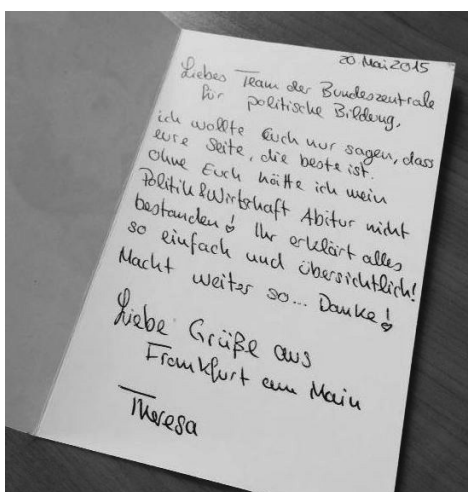 20 Mai 2015
Liebes Team der Bundeszentrale
für politische Bildung,
ich wollte Euch nur sagen, dass
eure Seite, die beste ist.
Ohne Euch hätte ich mein
Politik & Wirtschaft Abitur nicht
bestanden! Ihr erklärt alles
so einfach und übersichtlich!
Macht weiter so... Danke!
Liebe Grüße aus
Frankfurt am Main
Theresa